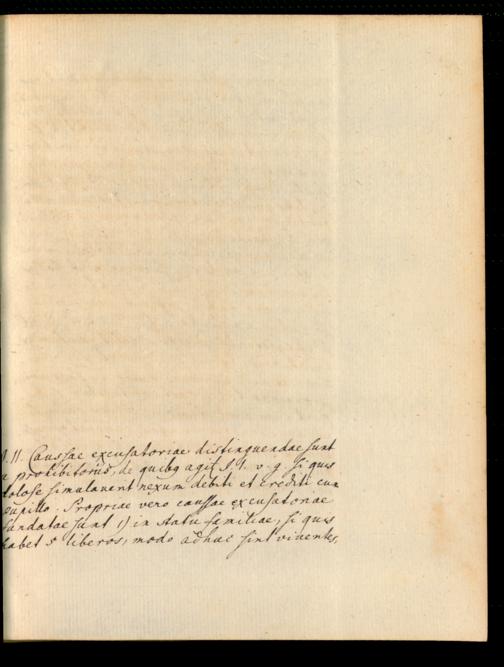 §. 11. Caussae excusatoriae distinguendae sunt
a prohibitoriis, de quibq agit §. 1. v. g. si quis
dolose simulaverit nexum debiti et crediti cum
pupillo. Propriae vero caussae excusatoriae
fundatae sunt 1) in statu familiae, si quis
habet 5 liberos, modo adhuc sint viventes,